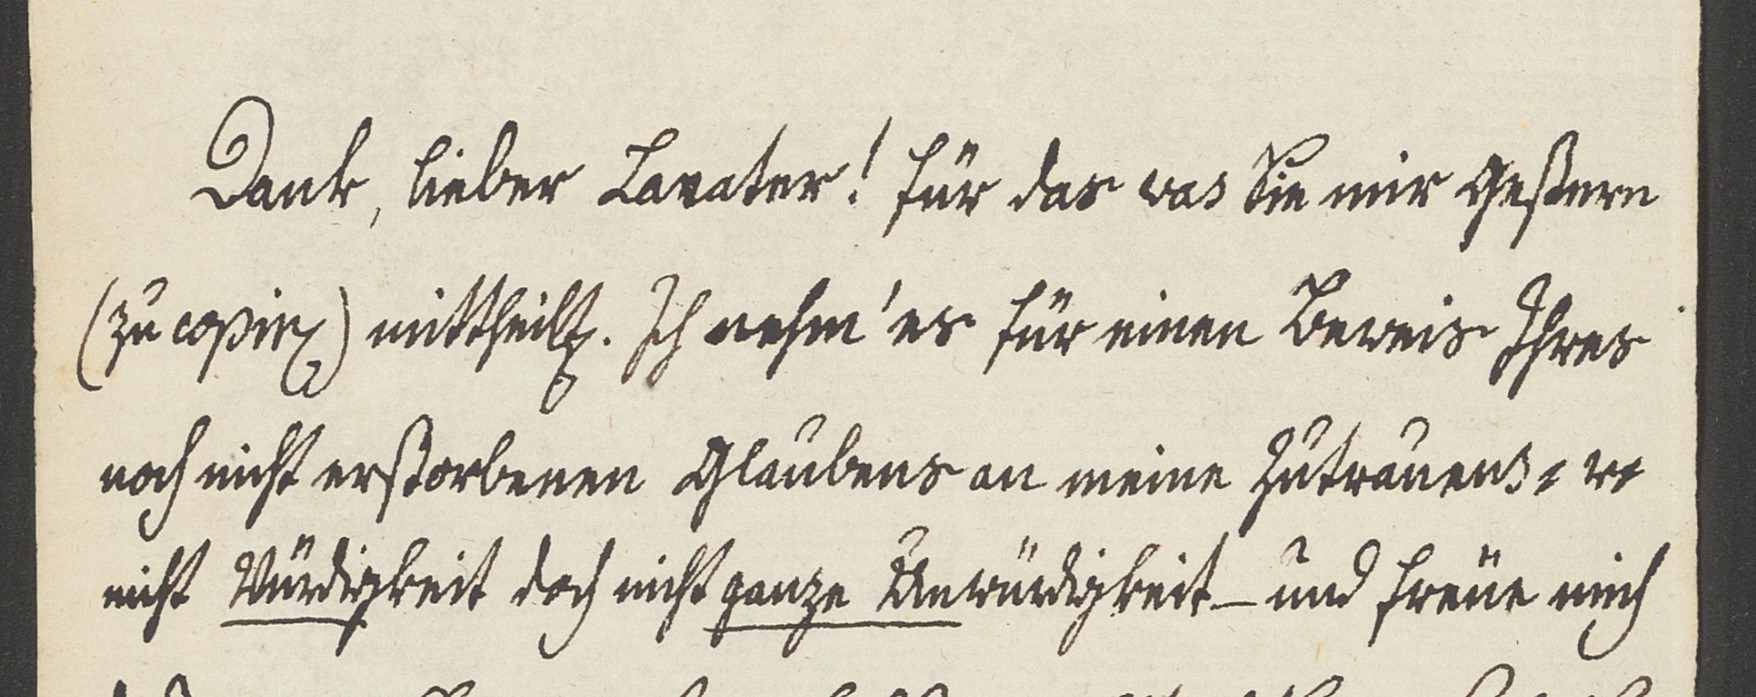 Dank, lieber Lavater! für das was Sie mir Gestern
(zu copiren) mittheilten. Ich nehm' es für einen Beweis Ihres
noch nicht erstorbenen Glaubens an meine Zutrauens-
nicht Würdigkeit doch nicht ganze Unwürdigkeit – und freüe mich